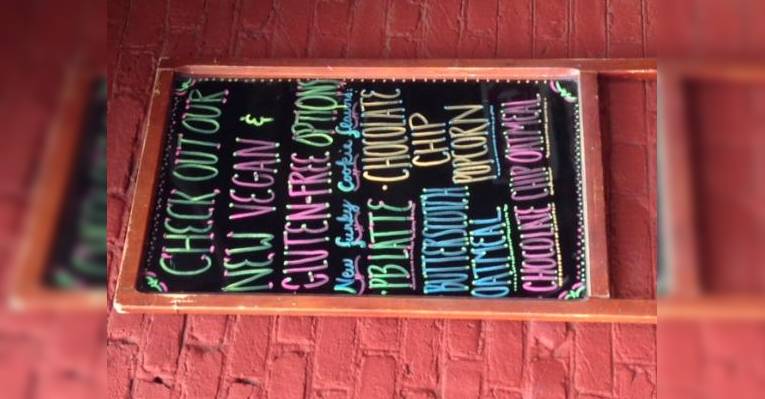 CHECK OUT OUR
NEW VEGAN &
GLUTEN-FREE OPTIONS
New funky Cookie flavors:
·PB LATTE ·CHOCOLATE
CHIP
POPCORN
BUTTERSCOTCH
OATMEAL
CHOCOLATE CHIP OATMEAL